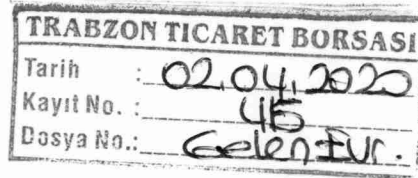 TRABZON TİCARET BORSASI
Tarih : 02.04.2020
Kayıt No. : 415
Dosya No.: Gelen Evr.